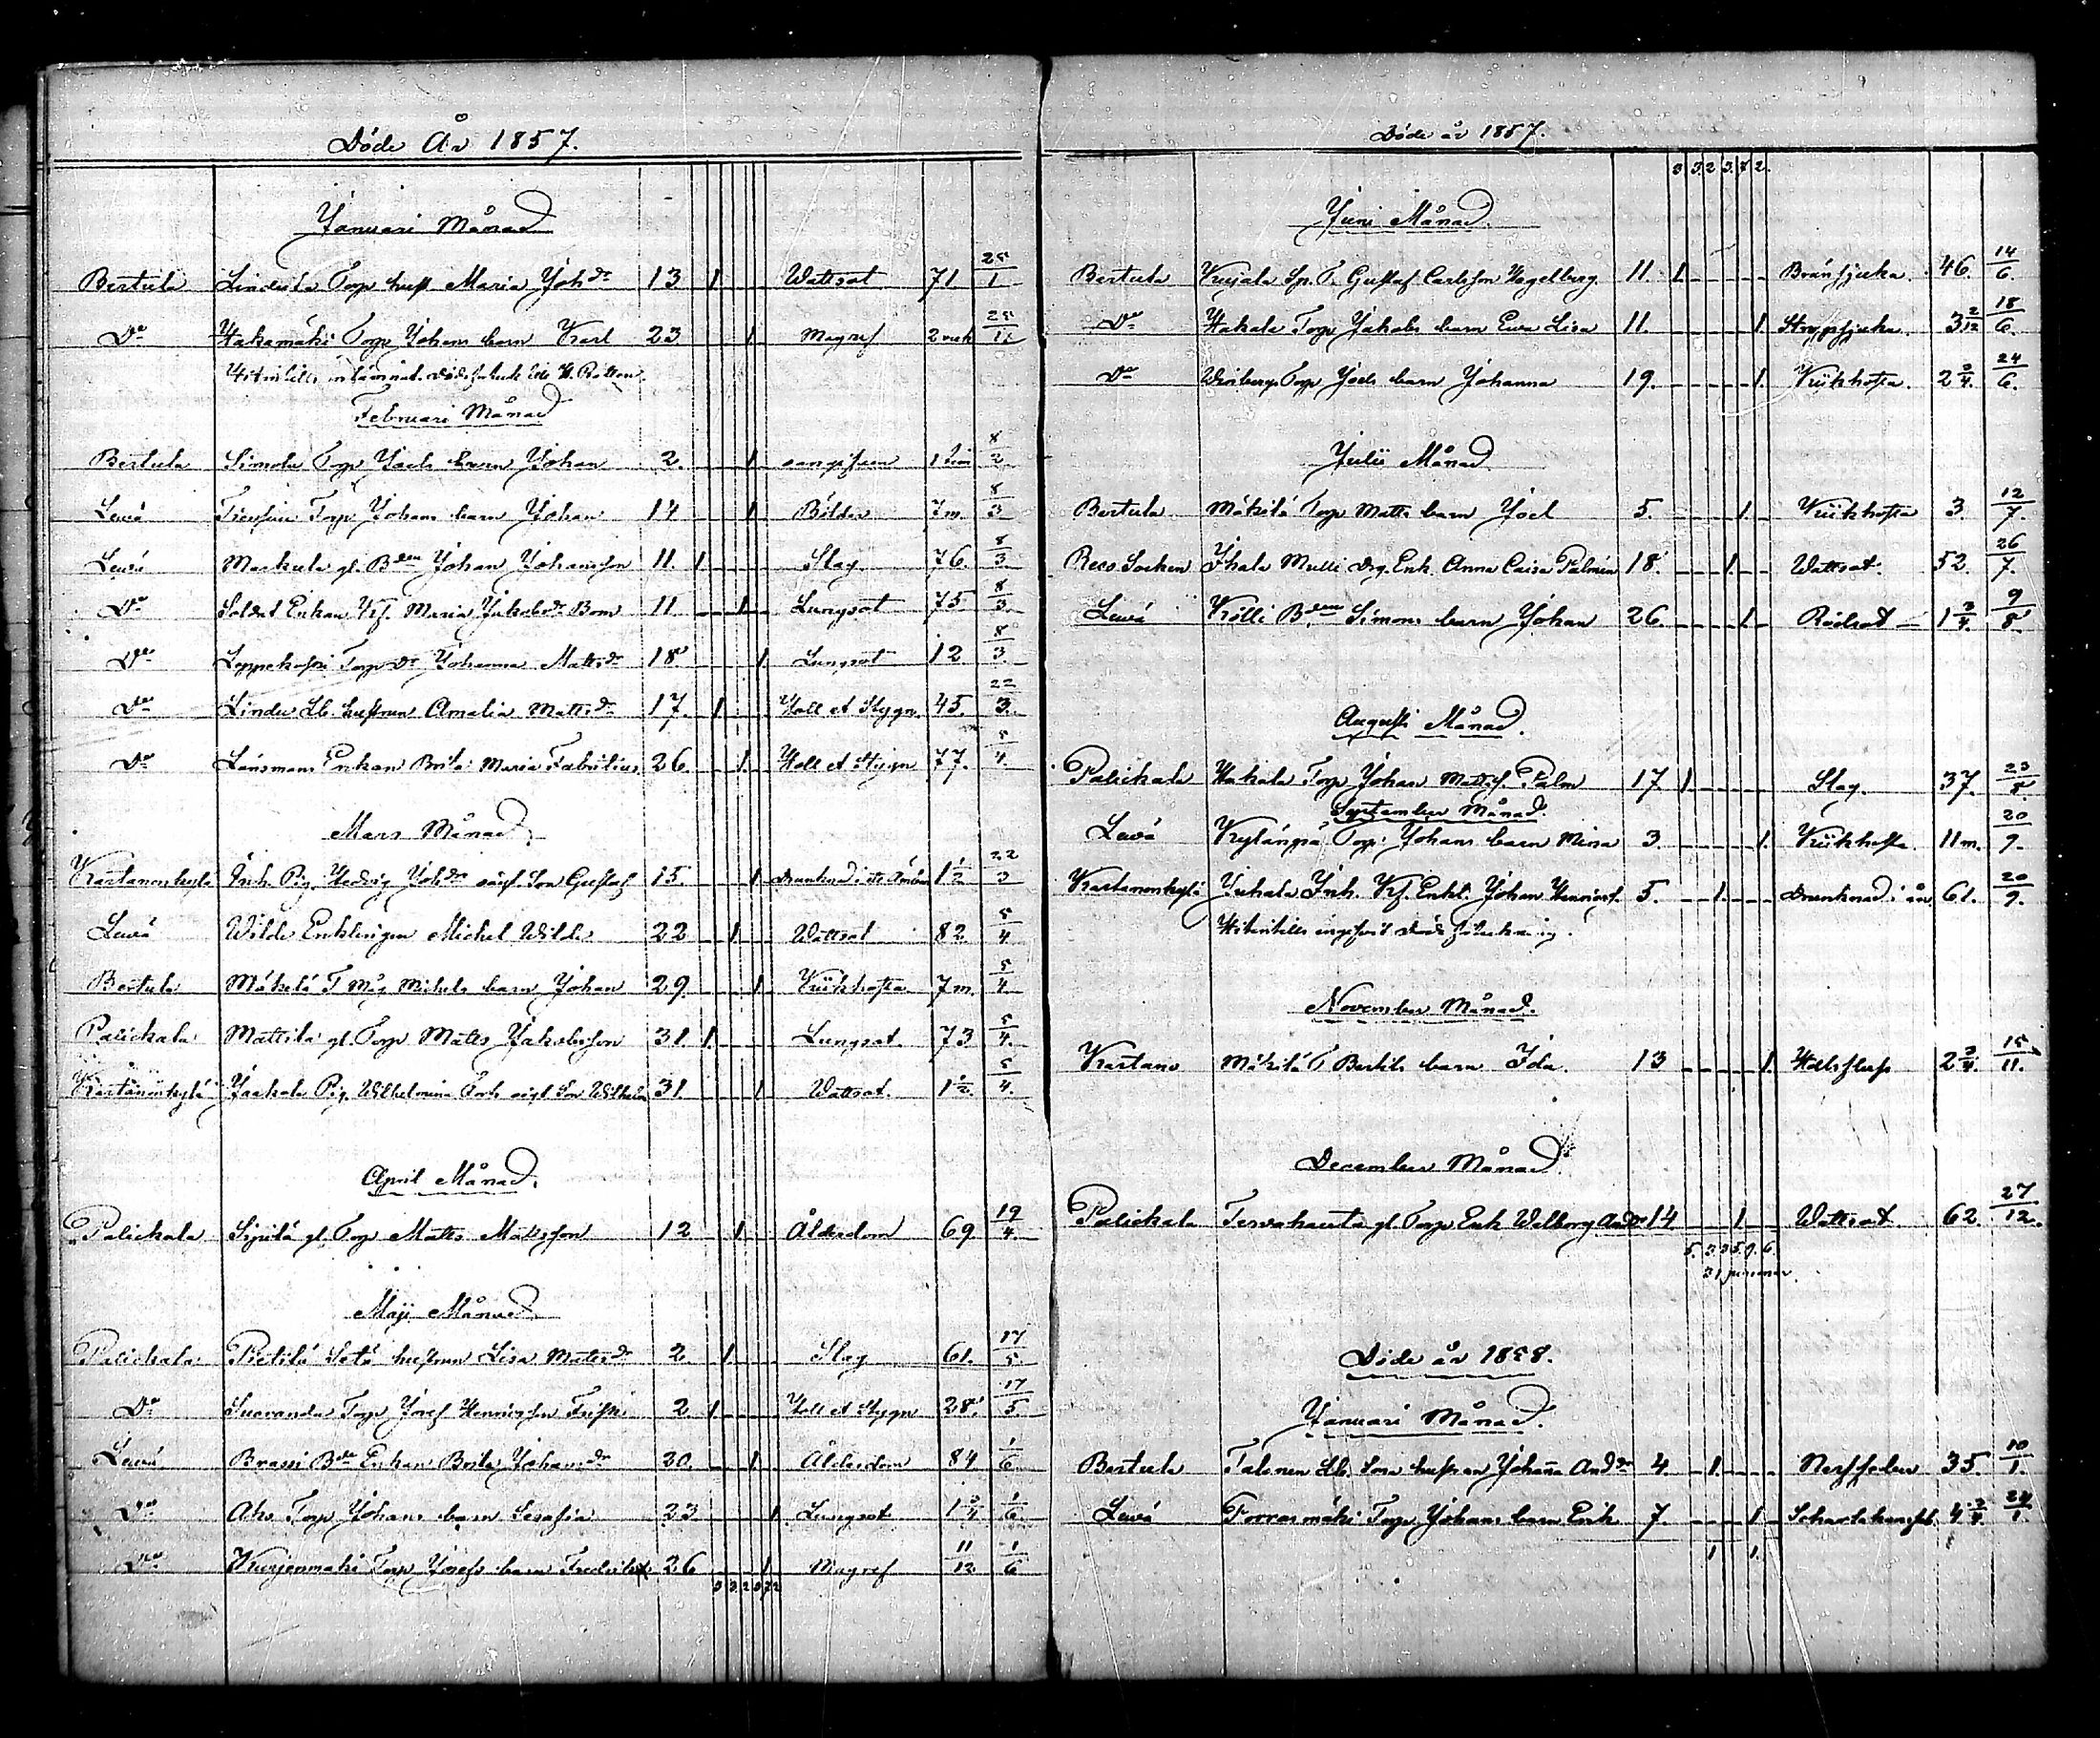 Döde År 1857.
Januari Månad
Bertula Lindula Torp hust Maria Johdr 13 1 Wattsot 71 25/1
Do Hakamäki Torp Johans barn Karl 23 1 Magref 2 veck 25/1.
Februari Månad
Bertula Simola Torp Joels barn Johan 2. 1 oangifven 1 tim 8/2
Lewä Torp Johans barn Johan 14 1 Bölder 7 m. 8/3
Lewä Markula gl. Bden Johan Johansson 11. 1 Slag 76. 8/3
Do Soldat Enkan Maria Jakobsdr Bom 11 1 Lungsot 75 8/3
Do Leppekoski Torp Dr Johanna Mattsdr 18 1 Lungsot 12 8/3.
Do Linder Lb. hustrun Amalia Mattsdr 17. 1 Håll et Stygn. 45. 22/3.
Do Länsmans Enkan Brita Maria Fabritius 26. 1. Håll et Stygn 77. 5/4.
Mars Månad.
Kartanonkylä Inh. Pig. Hedvig Johdr oägt. Son Gustaf 15. 1 drunknad i ett Ämbar 1 1/2 22/3
Lewä Wilde Enklingen Michel Wilde 22 1 Wattsot 82 5/4
Bertula Mäkelä T. Måg Michels barn Johan 29. 1 Kikhosta 7 m. 5/4
Palickala Mattila gl. Torp Matts Jakobsson 31. 1 Lungsot. 73 5/4.
Kartanonkylä Jaakola Pig. Wilhelmina oägt Son Wilhelm 31. 1 Wattsot. 1 1/2. 5/4.
April Månad.
Palickala gl. Torp Matts Mattsson 12 1. Ålderdom 69 19/4
Maji Månad.
Palickala Pietilä Setä hustrun Lisa Mattsdr 2. 1. Slag 61. 17/5
Do Suoranda Torp Josef Henricsson Frisk 2 1 Håll et Stygn 28. 17/5.
Lewä Brassi Bde Enkan Brita Johansdr 20. 1. Ålderdom 84 1/6.
Do Aho Torp Johans barn Serafia 23 1 Lungsot 1 3/4 1/6.
Do Kurjenmäki Torp Josefs barn Fredrika 26 1 Magref 11/12 1/6
3 3 2 3 7 2
Döde år 1857.
3 3 2 3. 7 2.
Juni Månad.
Bertula Kujala Torp. Gustaf Carlsson Hagelberg. 11. 1 Bränsjuka. 46. 14/6.
Do Hakala Torp Jakobs barn Ewa Lisa 11. 1. Strypsjuka. 3 2/12 18/6.
Do Winberg Torp Joels barn Johanna 19. 1. Kikhosta. 2 3/4. 24/6.
Julii Månad
Bertula Mäkilä Torp Matts barn Joel 5. 1. Kikhosta 3. 12/7.
Reso Socken Ihala Mulli Drg. Enk. Anna Caisa Palmén 18. 1. Wattsot. 52. 26/7.
Lewä Kölli Bden Simons barn Johan 26. 1. Rödsot 1 3/4. 9/8.
Augusti Månad.
Palickala Hakala Torp Johan Mattss. Palm 17 1. Slag. 37. 23/8.
September Månad.
Lewä Kylänpä Torp. Johans barn Mina 3. 1. Kikhosta. 11 m. 20/9.
Kartanonkylä Juhala Inh. Enkl. Johan Henricss. 5. 1. Drunknad i ån 61. 20/9.
November Månad.
Kartano Mäkilä T. Bertils barn Ida. 13 1. Halsfluss 2 3/4. 15/11.
December Månad.
Palickala Tervahauta gl. Torp Enk Walborg Anddr 14 1. Wattsot 62. 27/12.
5. 3 3 5. 9. 6.
31 personer.
Döde år 1858.
Januari Månad.
Bertula Talonen Lb. hustrun Johana Anddr 4. 1. Nerffeber 35. 10/1.
Lewä Forrasmäki Torp Johans barn Erik 7. 1. Scharlakansfeb. 4 3/4. 24/1
1 1.